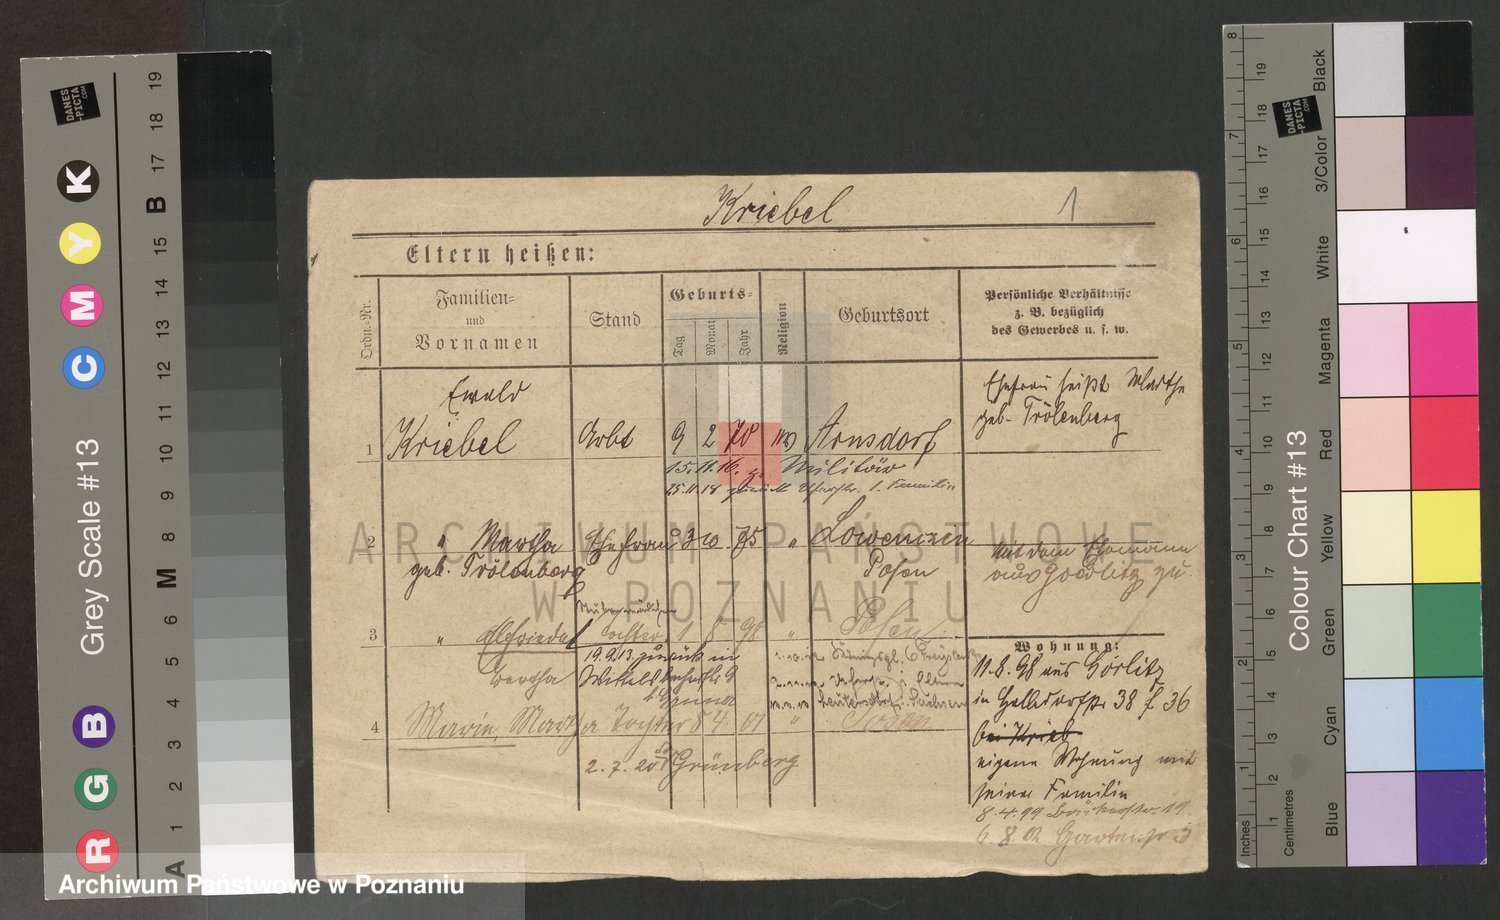 Kriebel 1
Eltern heißen:
Ordn.-Nr.
Familien-
und
Vornamen
Stand
Geburts-
Tag
Monat
Jahr
Religion
Geburtsort
Persönliche Verhältnisse
z. B. bezüglich
des Gewerbes u. s. w.
Ewald
1 Kriebel Arbt 9 2 70 Arnsdorf
Ehefrau heißt Martha
geb. Trölenberg
15.11.16. z. Militär
25.11.18 zurück Familie
2 " Martha Ehefrau 3 10 75 " Lowenczen
geb. Trölenberg Posen
mit dem Ehemann
aus Goerlitz zu.
3 " Elfriede Tochter 1 8 98 " Posen
Bertha
19.9.13 zurück in
4 Marie, Martha Tochter 5 4 01 " Posen
2. 7. 20 Grünberg
Wohnung:
11.8.98 aus Görlitz
in 38 f 36
bei Krieb
eigene Wohnung mit
seiner Familie
8.4.99
6 8.02 Gartenstr 3
ARCHIWUM PAŃSTWOWE
W POZNANIU
Archiwum Państwowe w Poznaniu
Grey Scale #13
DANES
-PICTA
.COM
R G B C M Y K
A 1 2 3 4 5 6 M 8 9 10 11 12 13 14 15 B 17 18 19
Colour Chart #13
DANES
-PICTA
.COM
Blue
Cyan
Green
Yellow
Red
Magenta
White
3/Color
Black
Inches 1 2 3 4 5 6 7 8
Centimetres 1 2 3 4 5 6 7 8 9 10 11 12 13 14 15 16 17 18 19